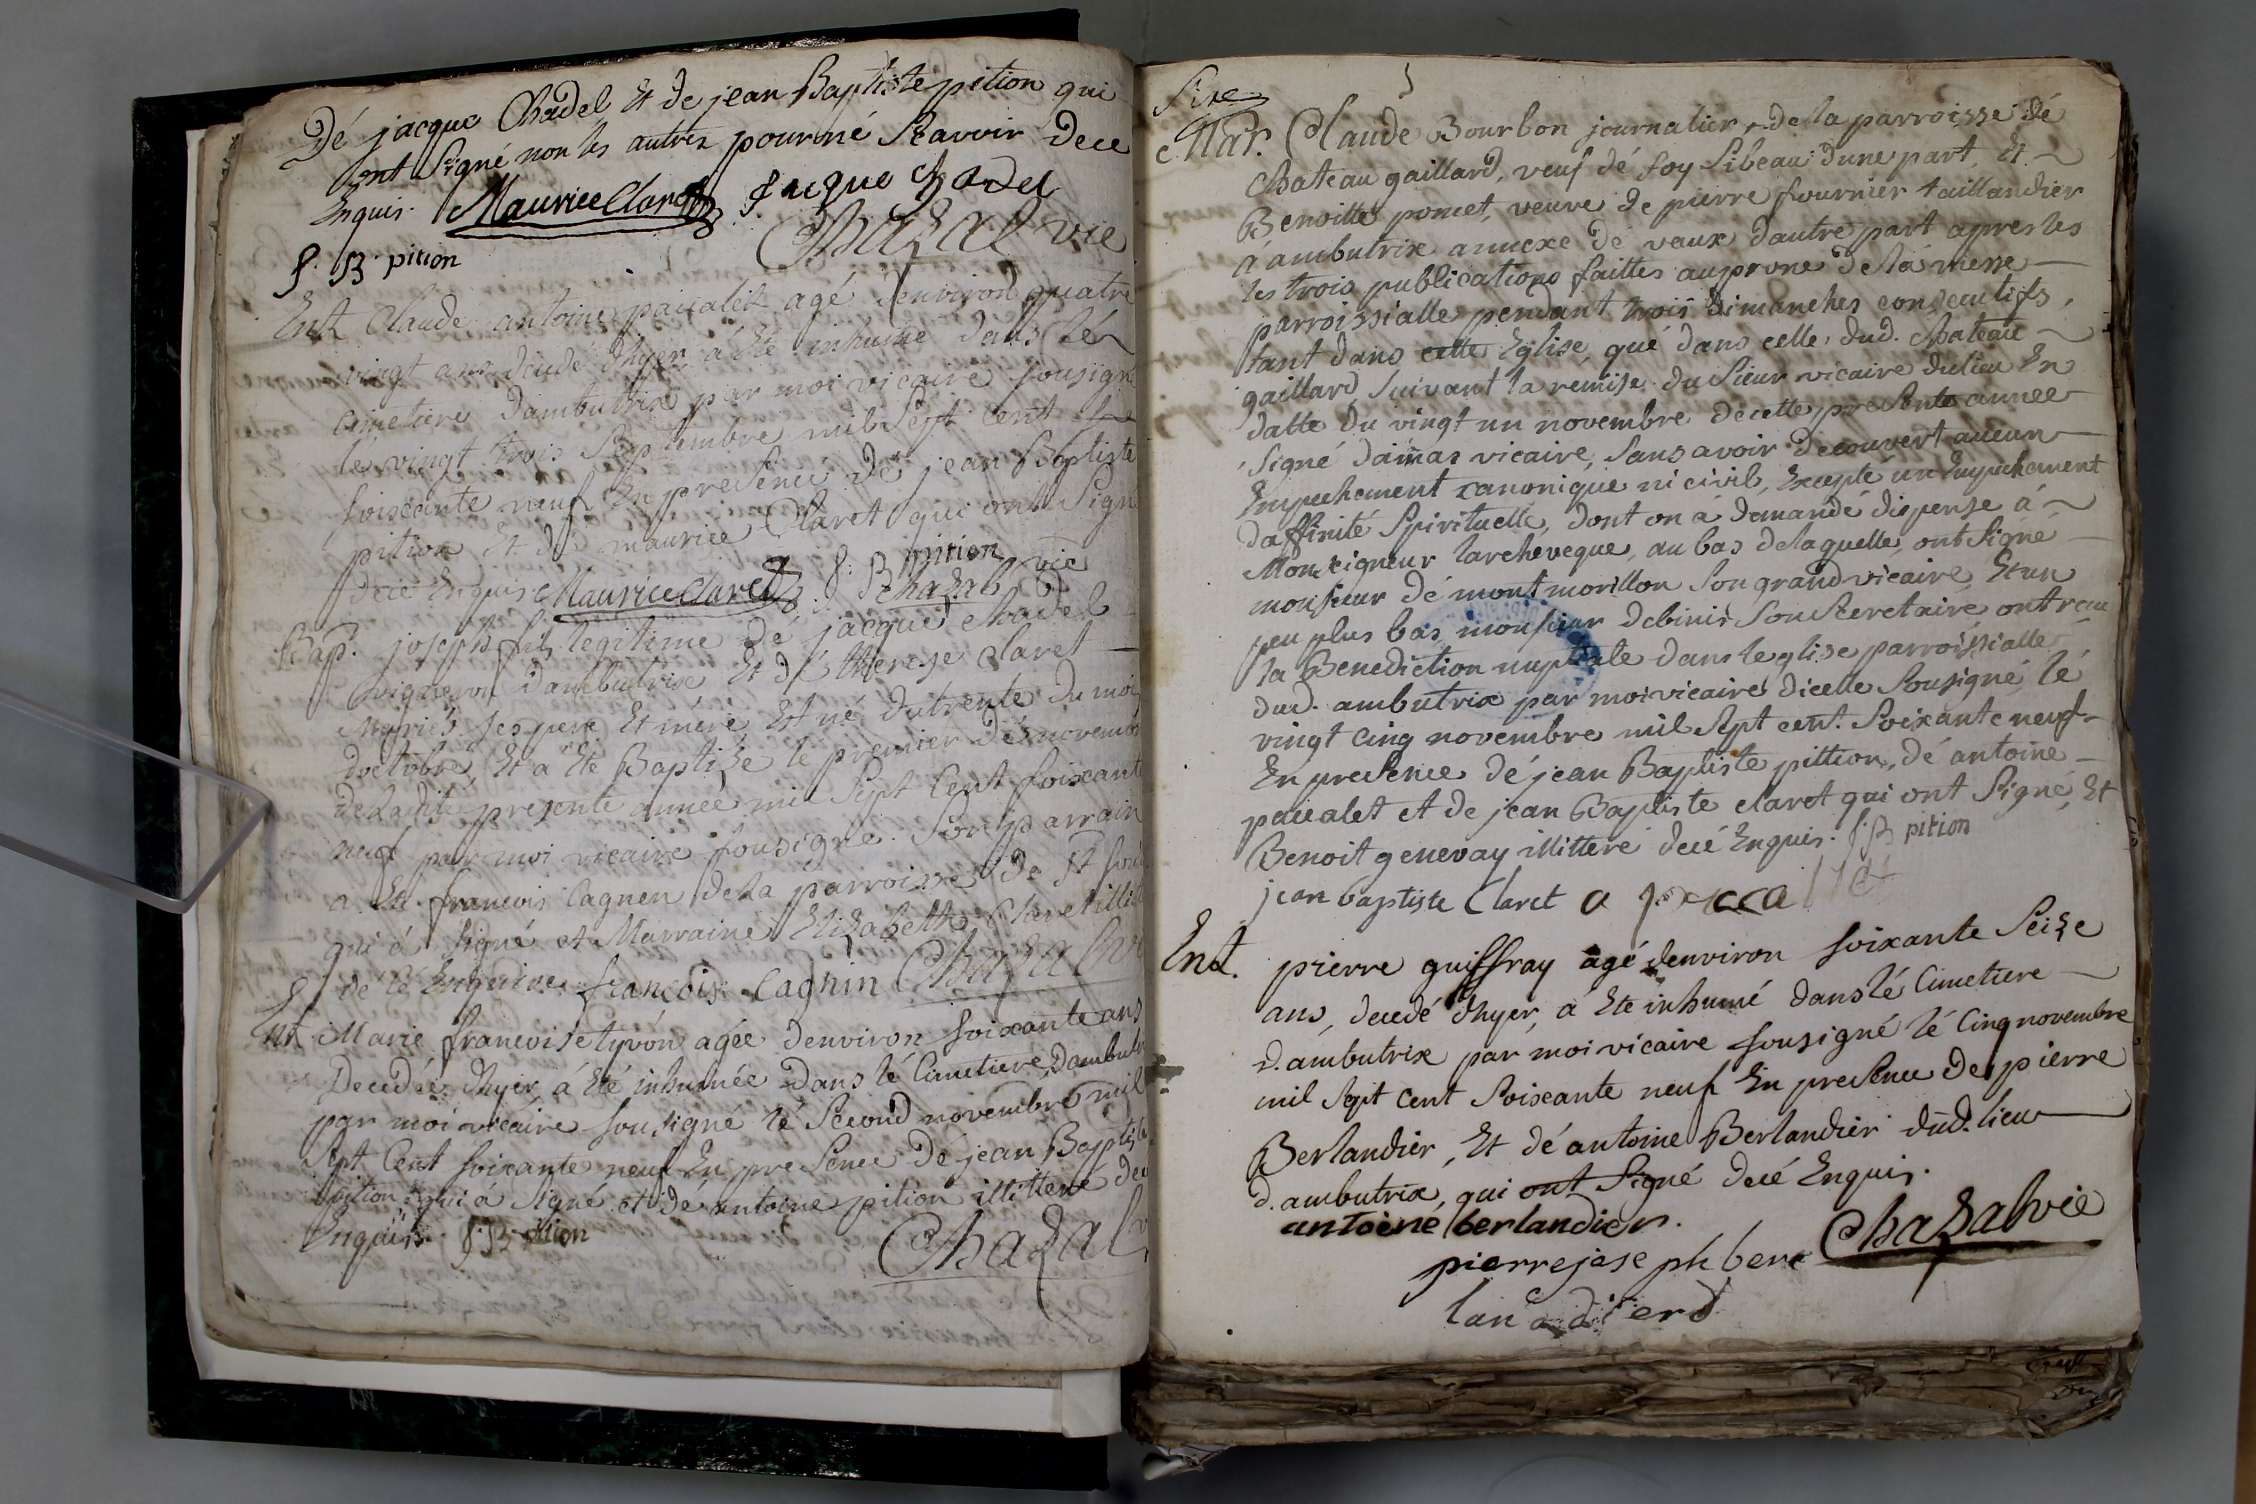 Dé jacque Chadel Et de jean Baptiste pition qui
ont Signé non les autres pour né Scavoir De ce
Enquis. Maurice Claret jacque chadel
Chazal vic
J. B. pition
Ent. Claude antoine paicalet agé denviron quatre
vingt ans decedé dhyer, a été inhumé dans le
cimetiere dambutrix par moi vicaire Sousigné
le vingt trois Septembre mil Sept cent
soixcante neuf En presence dé jean Baptiste
pition Et dé maurice Claret qui ont Signé
de ce Enquis Maurice Claret J. B. pition
Chazal vic
Bap. joseph fils legitime dé jacque chadel
vigneron dambutrix Et dé therese claret
Mariés ses pere Et mere Est né du trente du moi
doctobre, Et a été Baptizé le premier de novembre
de ladite presente année mil Sept Cent soixcante
neuf par moi vicaire sousigné. Son parrain
a été francois Cagnen de la parroisse de St
qui á Signé et Marraine Elizabeth Claret
de ce Enquise. françois Cagnin Chazal
Ent. Marie francoise tyvón agée denviron soixante ans
Decedée dhyer, á été inhumée dans lé Cimetiere Dambut
par moi vicaire sousigné lé Second novembre mil
Sept Cent soixante neuf En presence Dé jean Baptiste
pition qui á Signé et dé antoine pition illitteré de ce
Enquis. J. B. pition
Chazal
Sixe
Mar. Claude Bourbon journalier, de la parroisse dé
Chateau gaillard, veuf dé foy Sibeau dune part, Et
Benoitte poncet, veuve de pierre fournier taillandier
á ambutrix annexe dé vaux dautre part apres les
les trois publications faittes au prone de lá messe
parroissialle pendant trois dimanches consecutifs,
tant dans cette Eglise, qué dans celle, dud. Chateau
gaillard Suivant la remise du Sieur vicaire du lieu En
datte du vingt un novembre de cette presente année
Signé damas vicaire, Sans avoir decouvert aucun
Empechement canonique ni civil, Excepté un Empechement
daffinité Spirituelle, dont on á demandé dispense á
Monseigneur larcheveque, au bas de laquelle, ont Signé
monsieur dé montmorillon Son grand vicaire, Et un
peu plus bas, monsieur Debinis Son Secretaire ont recu
la Benediction nuptiale dans leglise parroissialle
dud. ambutrix par moi vicaire dicelle Sousigné lé
vingt cinq novembre mil Sept cent. Soixante neuf
En presence dé jean Baptiste pittion, dé antoine
paicalet et de jean Baptiste claret qui ont Signé, Et
Benoit genevay illitteré de cé Enquis. J. B. pition
jean baptiste Claret
Ent. pierre guiffray agé denviron soixante Seize
ans, decedé dhyer, á Eté inhumé dans lé Cimetiere
d'ambutrix par moi vicaire sousigné lé Cinq novembre
mil Sept Cent Soixcante neuf En presence De pierre
Berlandier, Et dé antoine Berlandier dud. lieu
d'ambutrix, qui ont Signé de cé Enquis.
antoiné berlandier.
pierre jose ph ber Chazal vic
lan dierd